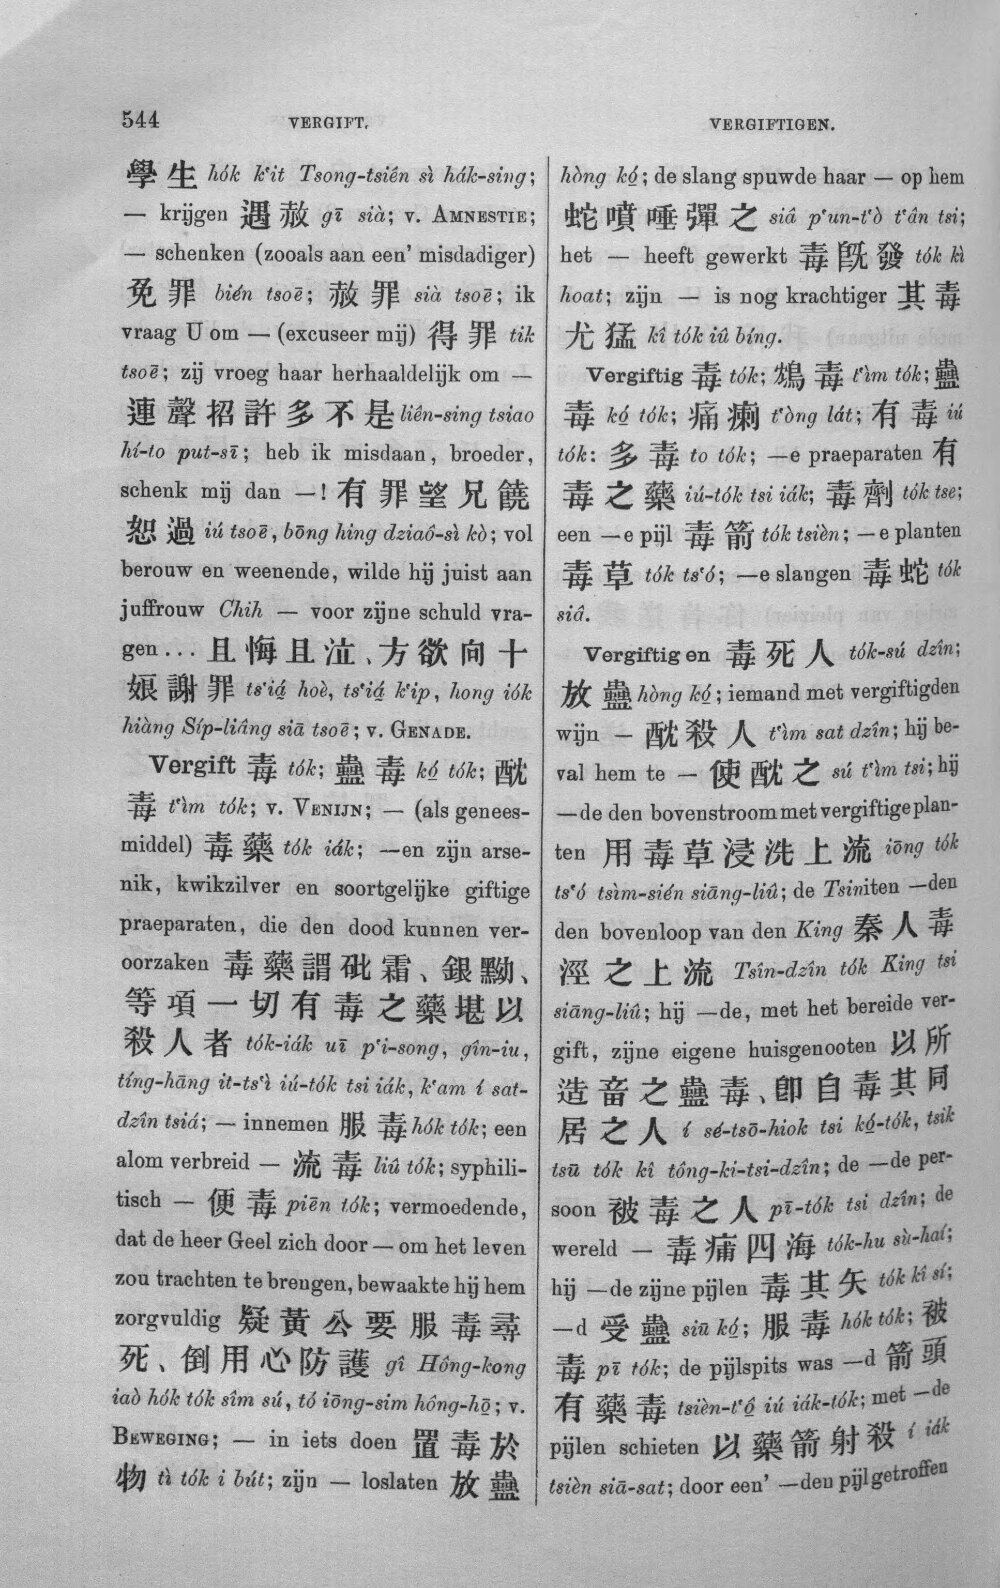 544 VERGIFT. VERGIFTIGEN.
學生 hók k‘it Tsong-tsién sì hák-sing;
— krijgen 遇赦 gī sià; v. AMNESTIE;
— schenken (zooals aan een’ misdadiger)
免罪 bién tsoē; 赦罪 sià tsoē; ik
vraag U om — (excuseer mij) 得罪 tik
tsoē; zij vroeg haar herhaaldelijk om —
連聲招許多不是 liên-sing tsiao
hí-to put-sī; heb ik misdaan, broeder,
schenk mij dan —! 有罪望兄饒
恕過 iú tsoē, bōng hing dziaô-sì kò; vol
berouw en weenende, wilde hij juist aan
juffrouw Chih — voor zijne schuld vra-
gen... 且悔且泣、方欲向十
娘謝罪 ts‘iá̤ hoè, ts‘iá̤ k‘ip, hong iók
hiàng Síp-liâng siā tsoē; v. GENADE.
Vergift 毒 tók; 蠱毒 kó̤ tók; 酖
毒 t‘ìm tók; v. VENIJN; — (als genees-
middel) 毒藥 tók iák; —en zijn arse-
nik, kwikzilver en soortgelijke giftige
praeparaten, die den dood kunnen ver-
oorzaken 毒藥謂砒霜、銀黝、
等項一切有毒之藥堪以
殺人者 tók-iák uī p‘i-song, gîn-iu,
tíng-hāng it-ts‘ì iú-tók tsi iák, k‘am í sat-
dzîn tsiá; — innemen 服毒 hók tók; een
alom verbreid — 流毒 liû tók; syphili-
tisch — 便毒 piēn tók; vermoedende,
dat de heer Geel zich door — om het leven
zou trachten te brengen, bewaakte hij hem
zorgvuldig 疑黃公要服毒尋
死、倒用心防護 gî Hông-kong
iaò hók tók sîm sú, tó iōng-sim hông-hō̤; v.
BEWEGING; — in iets doen 置毒於
物 tì tók i bút; zijn — loslaten 放蠱
hòng kó̤; de slang spuwde haar — op hem
蛇噴唾彈之 siâ p‘un-t‘ò t‘ân tsi;
het — heeft gewerkt 毒既發 tók kì
hoat; zijn — is nog krachtiger 其毒
尤猛 kî tók iû bíng.
Vergiftig 毒 tók; 鴆毒 t‘ìm tók; 蠱
毒 kó̤ tók; 痛瘌 t‘òng lát; 有毒 iú
tók: 多毒 to tók; —e praeparaten 有
毒之藥 iú-tók tsi iák; 毒劑 tók tse;
een —e pijl 毒箭 tók tsièn; —e planten
毒草 tók ts‘ó; —e slangen 毒蛇 tók
siâ.
Vergiftigen 毒死人 tók-sú dzîn;
放蠱 hòng kó̤; iemand met vergiftigden
wijn — 酖殺人 t‘ìm sat dzîn; hij be-
val hem te — 使酖之 sú t‘ìm tsi; hij
—de den bovenstroom met vergiftige plan-
ten 用毒草浸洗上流 iōng tók
ts‘ó tsìm-sién siāng-liû; de Tsiniten —den
den bovenloop van den King 秦人毒
涇之上流 Tsîn-dzîn tók King tsi
siāng-liû; hij —de, met het bereide ver-
gift, zijne eigene huisgenooten 以所
造畜之蠱毒、卽自毒其同
居之人 í sé-tsō-hiok tsi kó̤-tók, tsik
tsū tók kî tông-ki-tsi-dzîn; de —de per-
soon 被毒之人 pī-tók tsi dzîn; de
wereld — 毒痡四海 tók-hu sù-haí;
hij —de zijne pijlen 毒其矢 tók kî sí;
—d 受蠱 siū kó̤; 服毒 hók tók; 被
毒 pī tók; de pijlspits was —d 箭頭
有藥毒 tsièn-t‘ô̤ iú iák-tók; met —de
pijlen schieten 以藥箭射殺 í iák
tsièn siā-sat; door een’ —den pijl getroffen